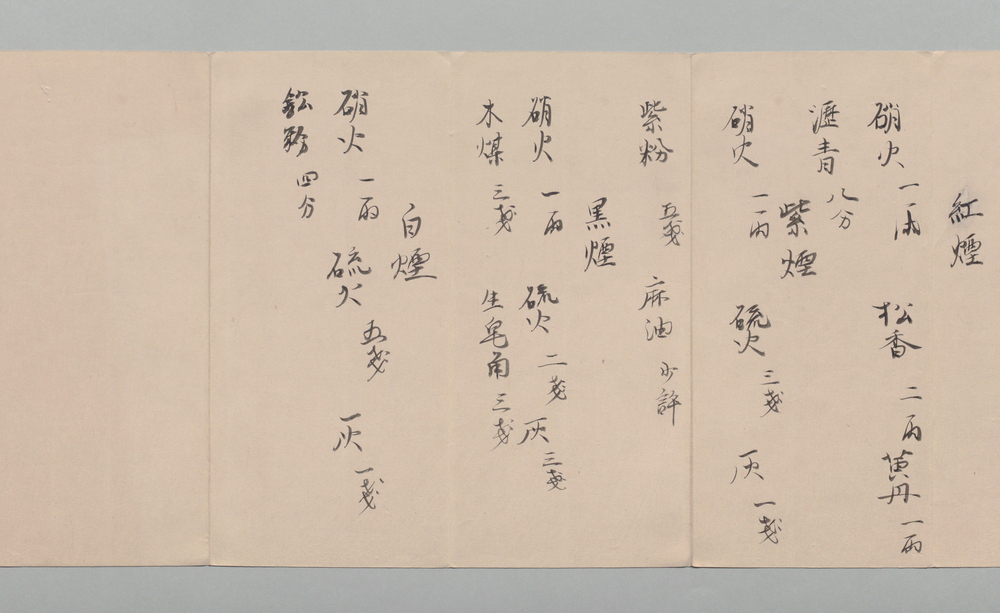 紅煙
硝火 一両 松香 二両 黄丹 一両
瀝青 八分
紫煙
硝火 一両 硫火 三戔 灰 一戔
紫粉 五戔 麻油 少許
黒煙
硝火 一両 硫火 二戔 灰 三戔
木煤 三戔 生皂角 三戔
白煙
硝火 一両 硫火 五戔 灰 一戔
鉛粉 四分